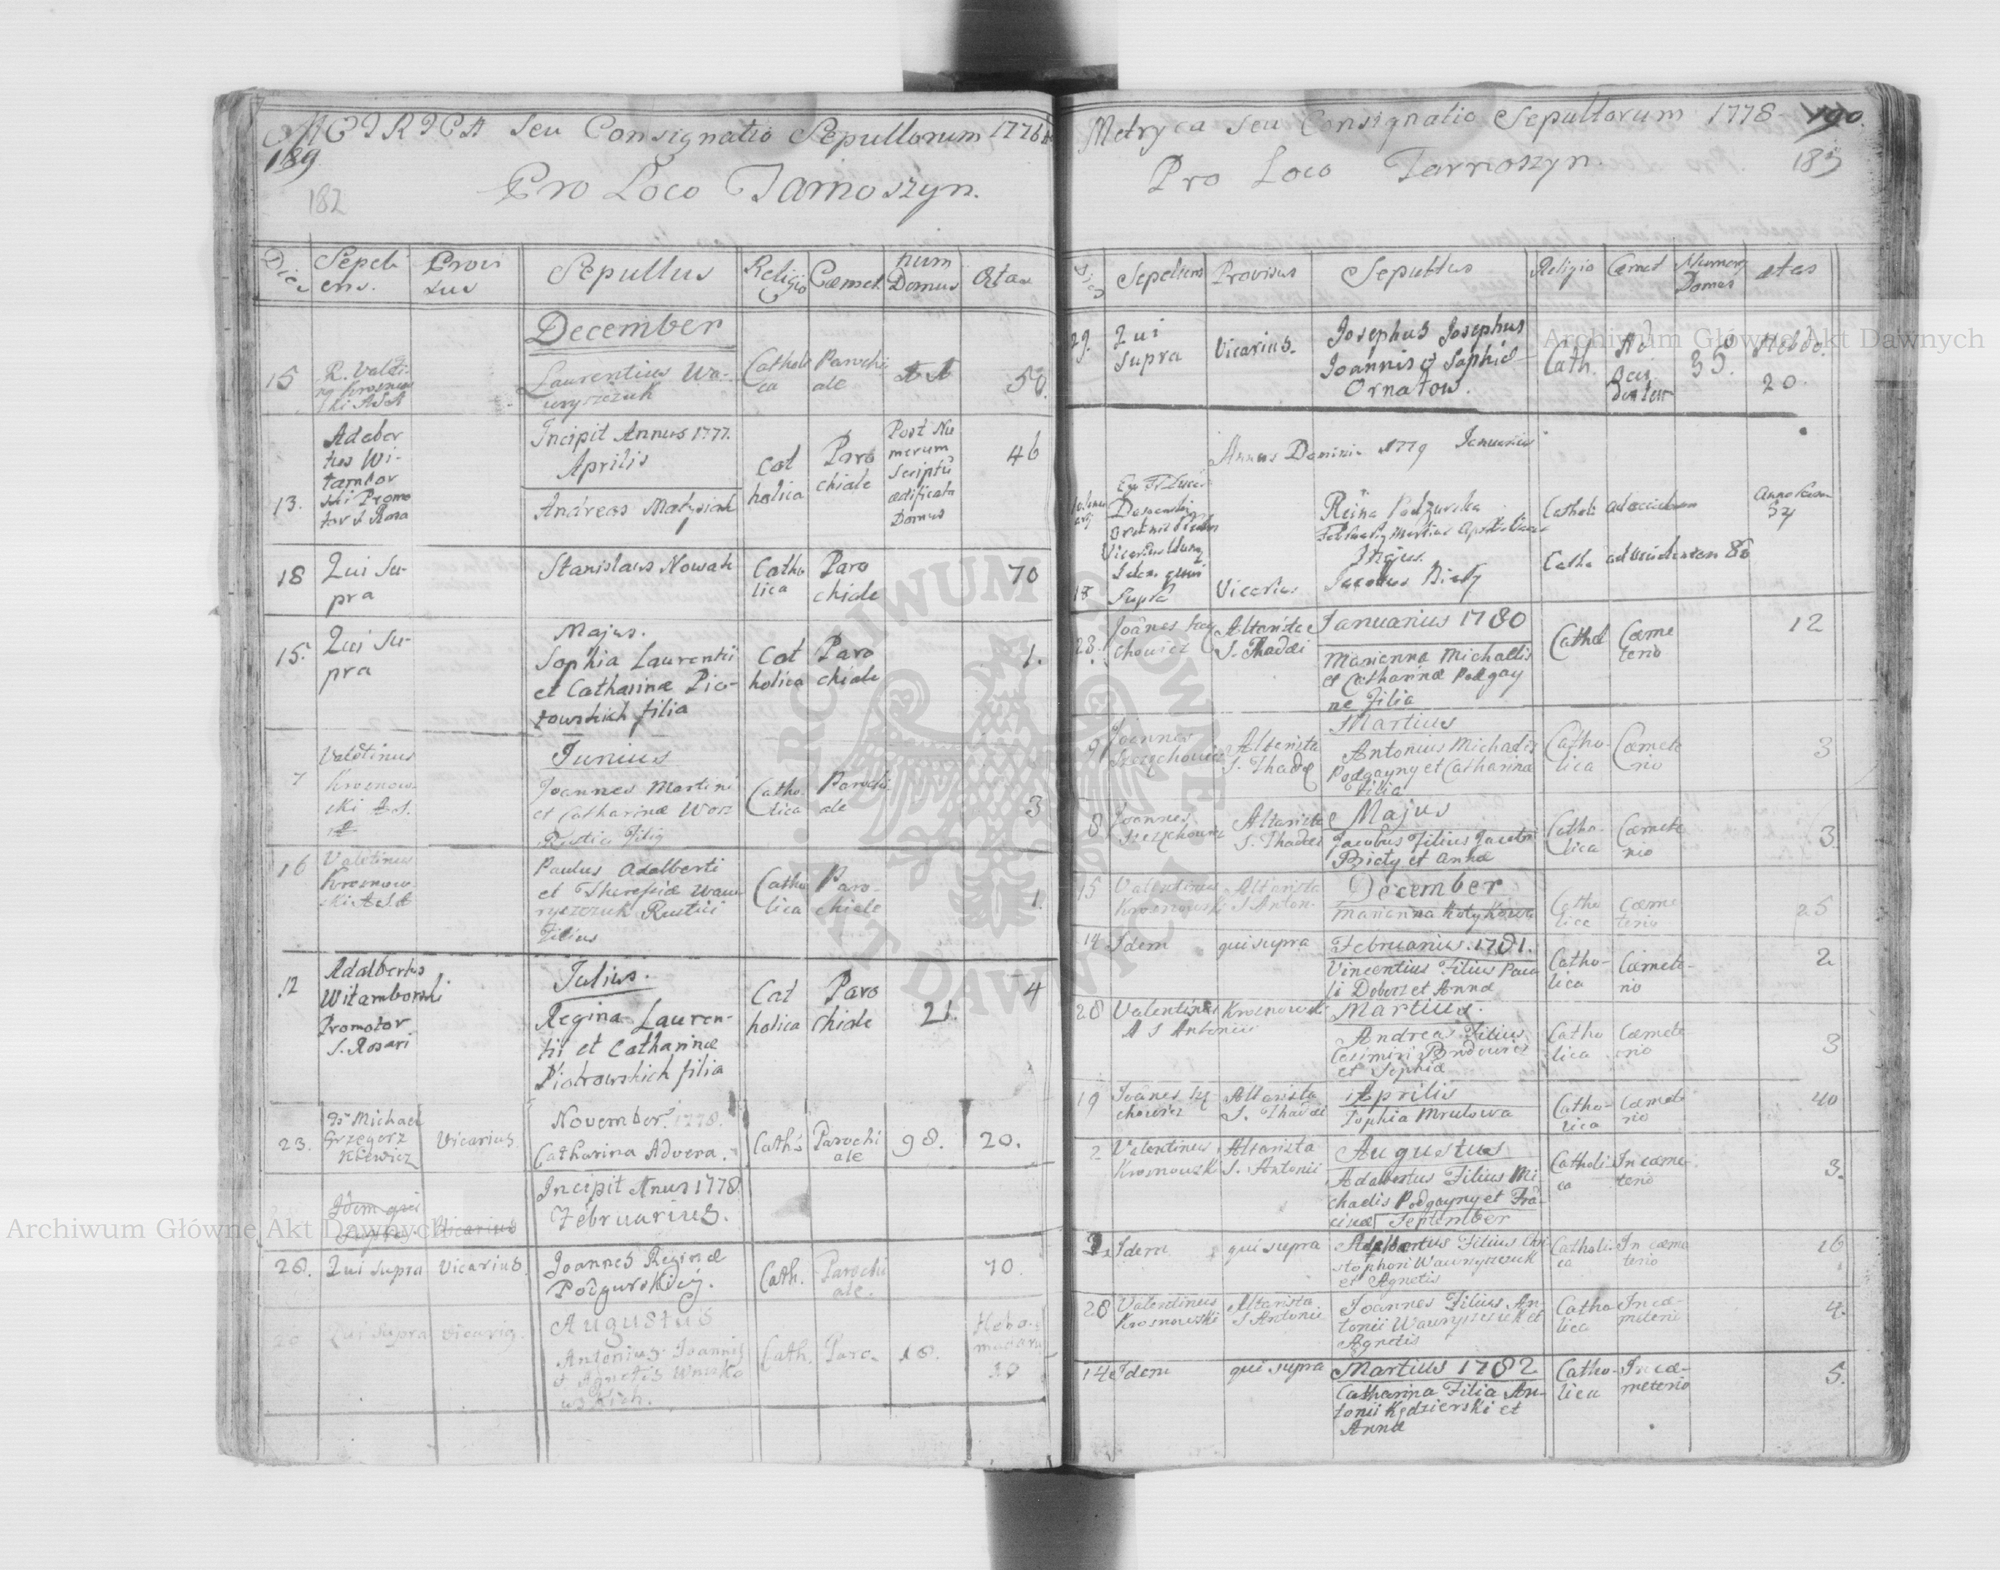 METRICA seu Consignatio Sepultorum 1776
189
182
Pro Loco Tarnoszyn.
Dies
Sepeli
ens.
Provi
sus
Sepultus
Religio
Cæmet.
num
Domus
Ætas
December
15
R. Valeti-
Krosnow
ski ASA
Laurentius Wa-
wryszczuk
Catholi
ca
Parochi
ale
50.
13.
Adalber
tus Wi-
tambor
ski Promo
tor S. Rosa
Incipit Annus 1777.
Aprilis
Andreas Matysiak
Cat
holica
Paro
chiale
Post Nu
merum
Scriptū
ædificata
Domus
46
18
Qui Su-
pra
Stanislaus Nowak
Catho
lica
Paro
chiale
70
15.
Qui Su-
pra
Majus.
Sophia Laurentii
et Catharinæ Pio-
trowskich filia
Cat
holica
Paro
chiale
1.
7
Valētinus
Krosnow
ski A.S.
Junius
Joannes Martini
et Catharinæ
Rustici Filij
Catho
lica
Parochi
ale
3
16
Valētinus
Krosnow-
ski ASA
Paulus Adalberti
et Theresiæ Waw
ryszczuk Rustici
Filius
Catho
lica
Paro-
chiale
1.
12
Adalbertus
Witamborski
Promotor
S. Rosari
Julius.
Regina Lauren-
tii et Catharinæ
Piotrowskich filia
Cat
holica
Paro
chiale
21.
4
23.
Fr Michael
Grzegorz
Kiewicz
Vicarius
November 1778.
Catharina Advena.
Cath.
Parochi
ale
98.
20.
Idem qui
supra
Vicarius
Incipit Anus 1778.
Februarius.
28.
Qui supra
Vicarius.
Joannes Reginæ
Podgurskiej.
Cath.
Parochi
ale.
70.
20
Qui supra
Vicariq.
Augustus
Antonius Joannis
et Agnetis Wnuko
wskich.
Cath.
Paro-
18.
Hebdo-
madaru
30
Metryca seu Consignatio Sepultorum 1778
190.
183
Pro Loco Tarnoszyn.
Dies
Sepeliens
Provisus
Sepultus
Religio
Cæmet
Numerq
Domus
ætas
29.
Qui
supra
Vicarius.
Josephus Josephus
Joannis et Sophiæ
Ornatow.
Cath.
Ad
Occi
dentem
38.
Hebdo.
20.
Annus Domini 1779 Januarius
Ego Fr Lucas
Regina Podgurska
Februarius Martius Aprilis
Catholi
ad occidentem
18
Idem qui
Supra
Vicarius
Majus.
Jacobus Bialy
Catho
ad occidentem
80
28.
Joānes Szy
chowicz
Altarista
S. Thadæi
Januarius 1780
Marianna Michaelis
et Catharinæ Podgay
ne Filia
Cathol
Cæme
terio
12
9
Joannes
Szczychowicz
Altarista
S. Thadæ
Martius
Antonius Michaelis
Podgayny et Catharinæ
Filia
Catho-
lica
Cæmete
rio
3
8
Joannes
Szczychowicz
Altarista
S. Thadæi
Majus
Jacobus Filius Jacobi
Bialy et Annæ
Catho-
lica
Cæmete
rio
3.
15
Valentinus
Krosnowski
Altarista
S Anton.
December
Marianna Kotykowa
Catho
lica
Cæme
terio
25
14
Idem
qui supra
Februarius. 1781.
Vincentius Filius Pau
li Dobosz et Annæ
Catho-
lica
Cæmete-
rio
2
28
Valentinus Krosnowski
A S Antonii
Martius.
Andreas Filius
Casimiri
et Sophiæ
Catho
lica
Cæmete
rio
3
19
Joānes Szy
chowicz
Altarista
S. Thadæi
Aprilis
Sophia Mrulowa
Catho-
lica
Cæmete
rio
40
2
Valentinus
Krosnowski
Altarista
S. Antonii
Augustus
Adalbertus Filius Mi
chaelis Podgayny et Frā
ciscæ
Catholi
ca
In cæme-
terio
3.
September
Idem
qui supra
Adalbertus Filius Chri
stophori Wawryszczuk
et Agnetis
Catholi-
ca
In cæme
terio
16
28
Valentinus
Krosnowski
Altarista
S Antonii
Joannes Filius An-
tonii Wawryszczuk et
Agnetis
Catho
lica
In cæ-
meterio
4.
14
Idem
qui supra
Martius 1782
Catharina Filia An-
tonii Kędzierski et
Annæ
Catho-
lica
In cæ-
meterio
5.
Archiwum Główne Akt Dawnych
Archiwum Główne Akt Dawnych
ARCHIWUM GŁÓWNE AKT DAWNYCH